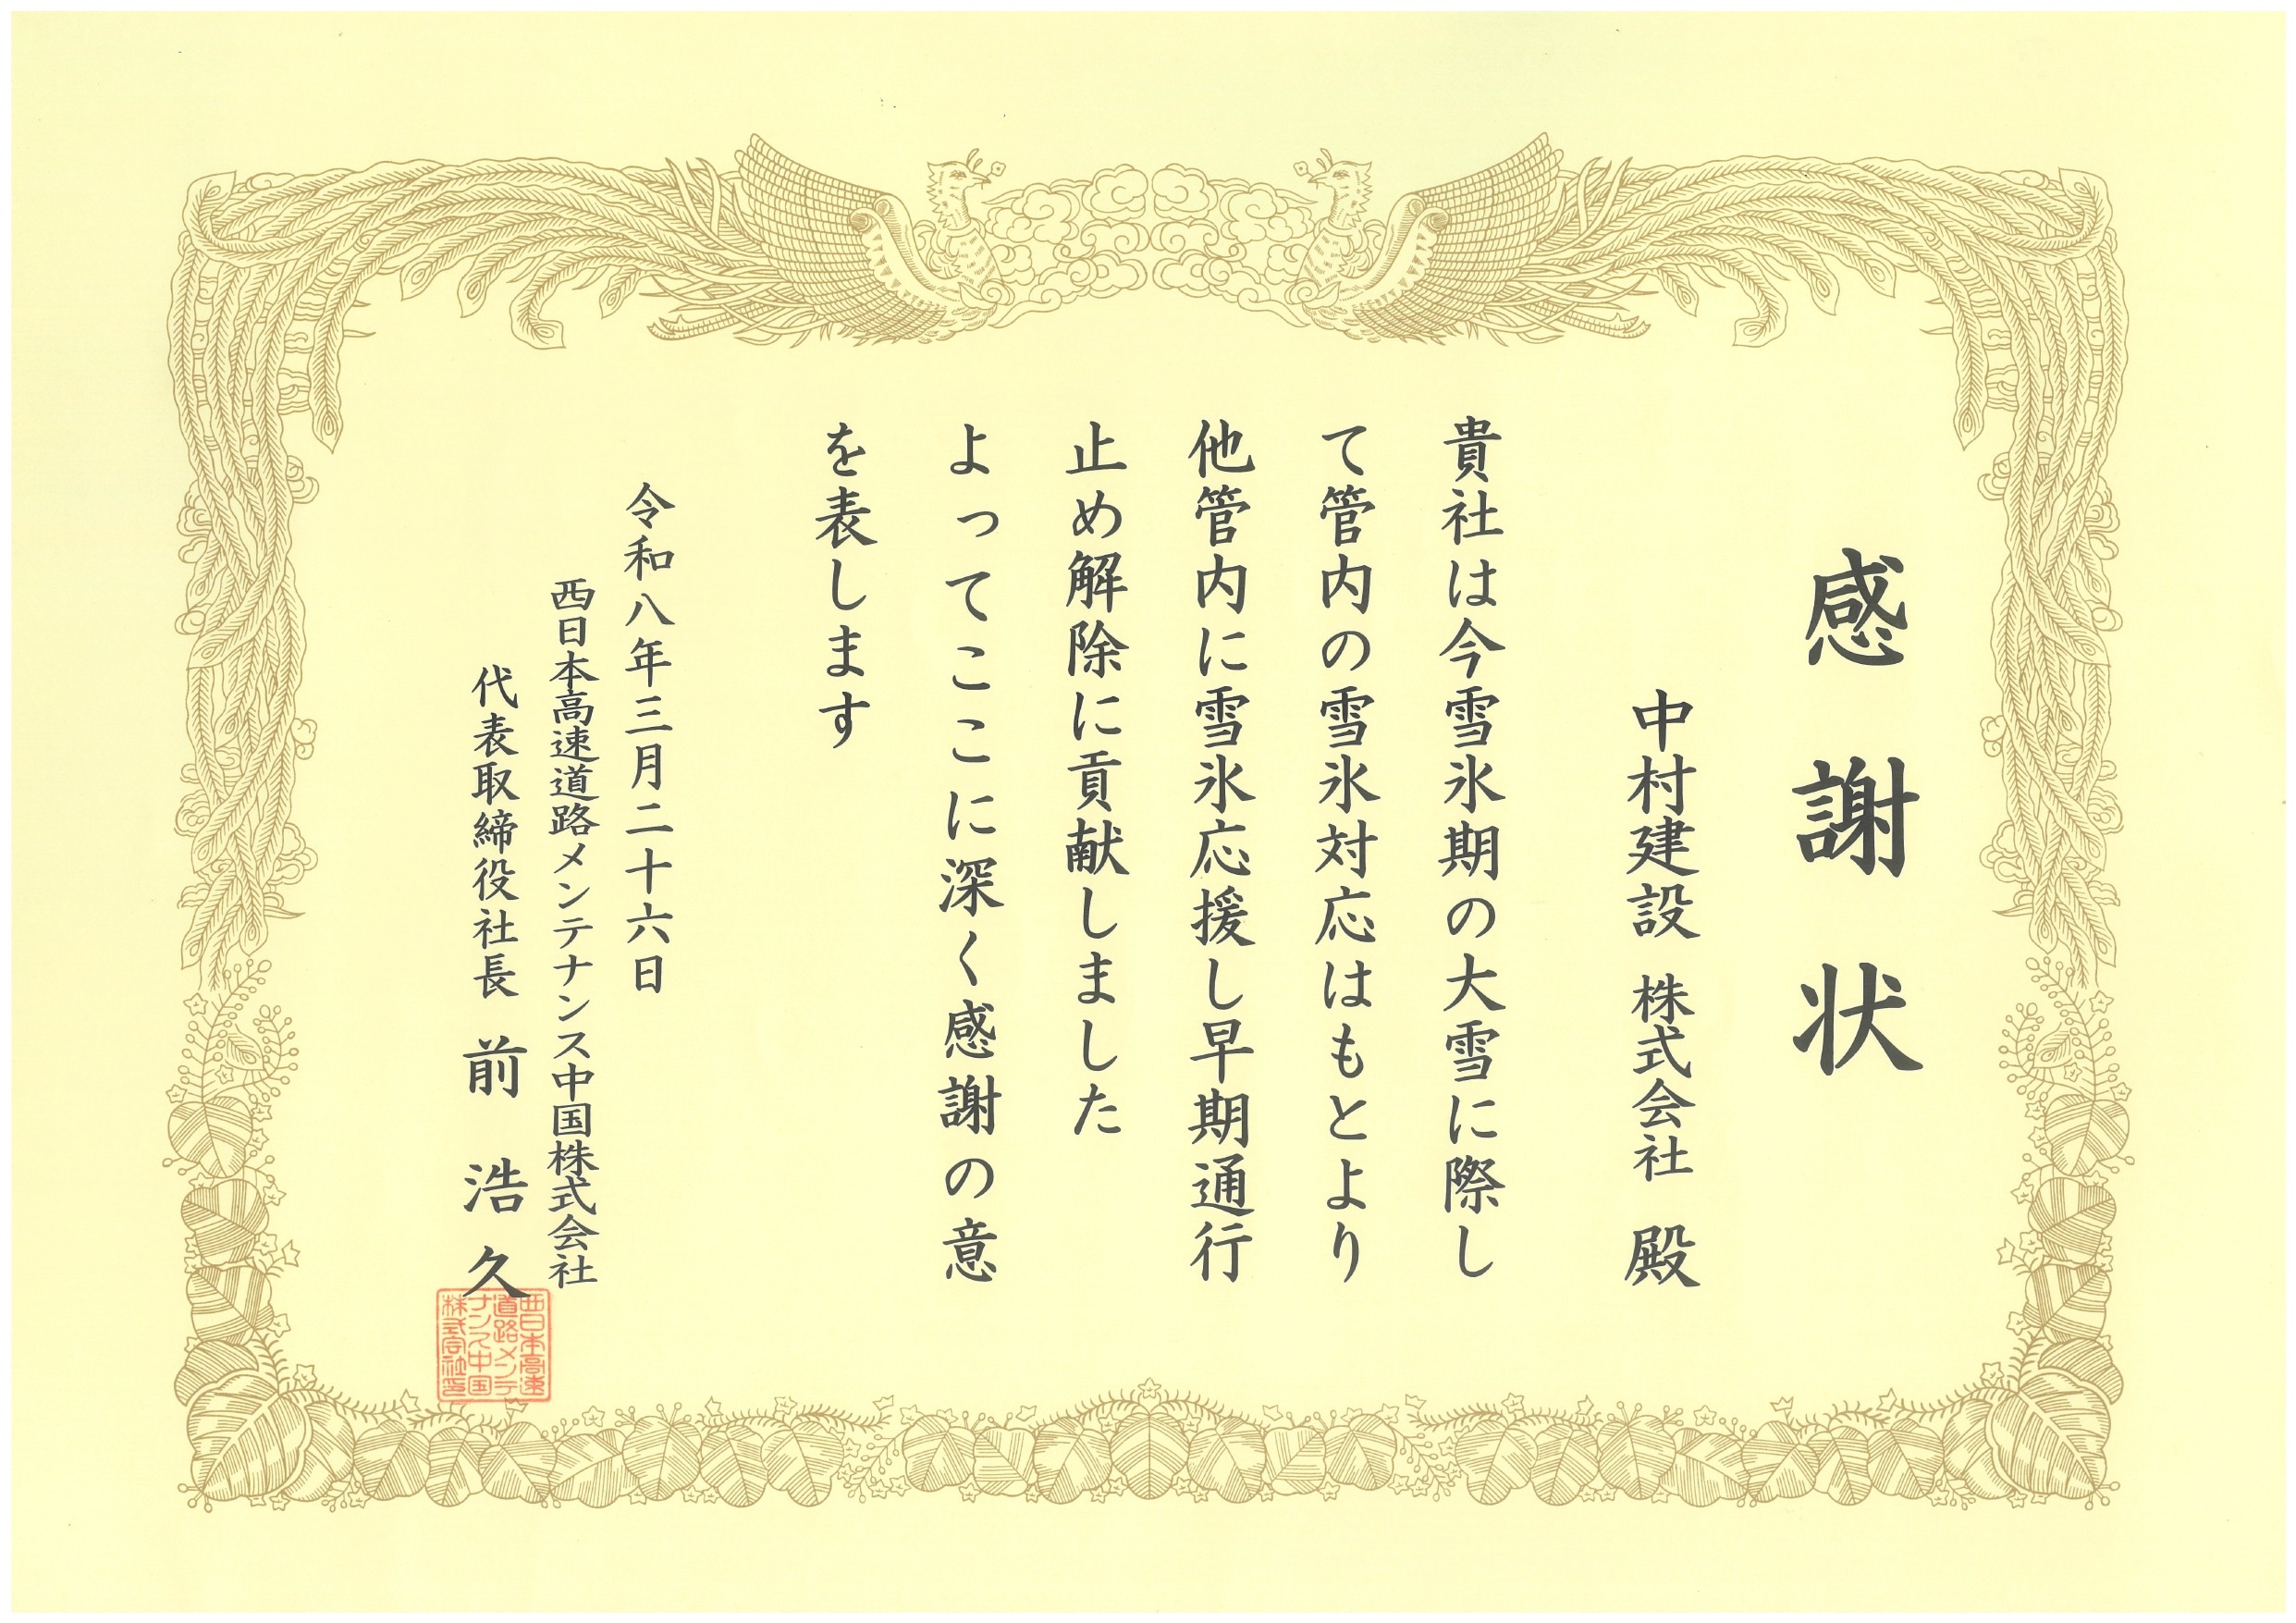 感謝状
中村建設 株式会社 殿
貴社は今雪氷期の大雪に際し
て管内の雪氷対応はもとより
他管内に雪氷応援し早期通行
止め解除に貢献しました
よってここに深く感謝の意
を表します
令和八年三月二十六日
西日本高速道路メンテナンス中国株式会社
代表取締役社長 前 浩 久
西日本高速
道路メンテ
ナンス中国
株式会社印